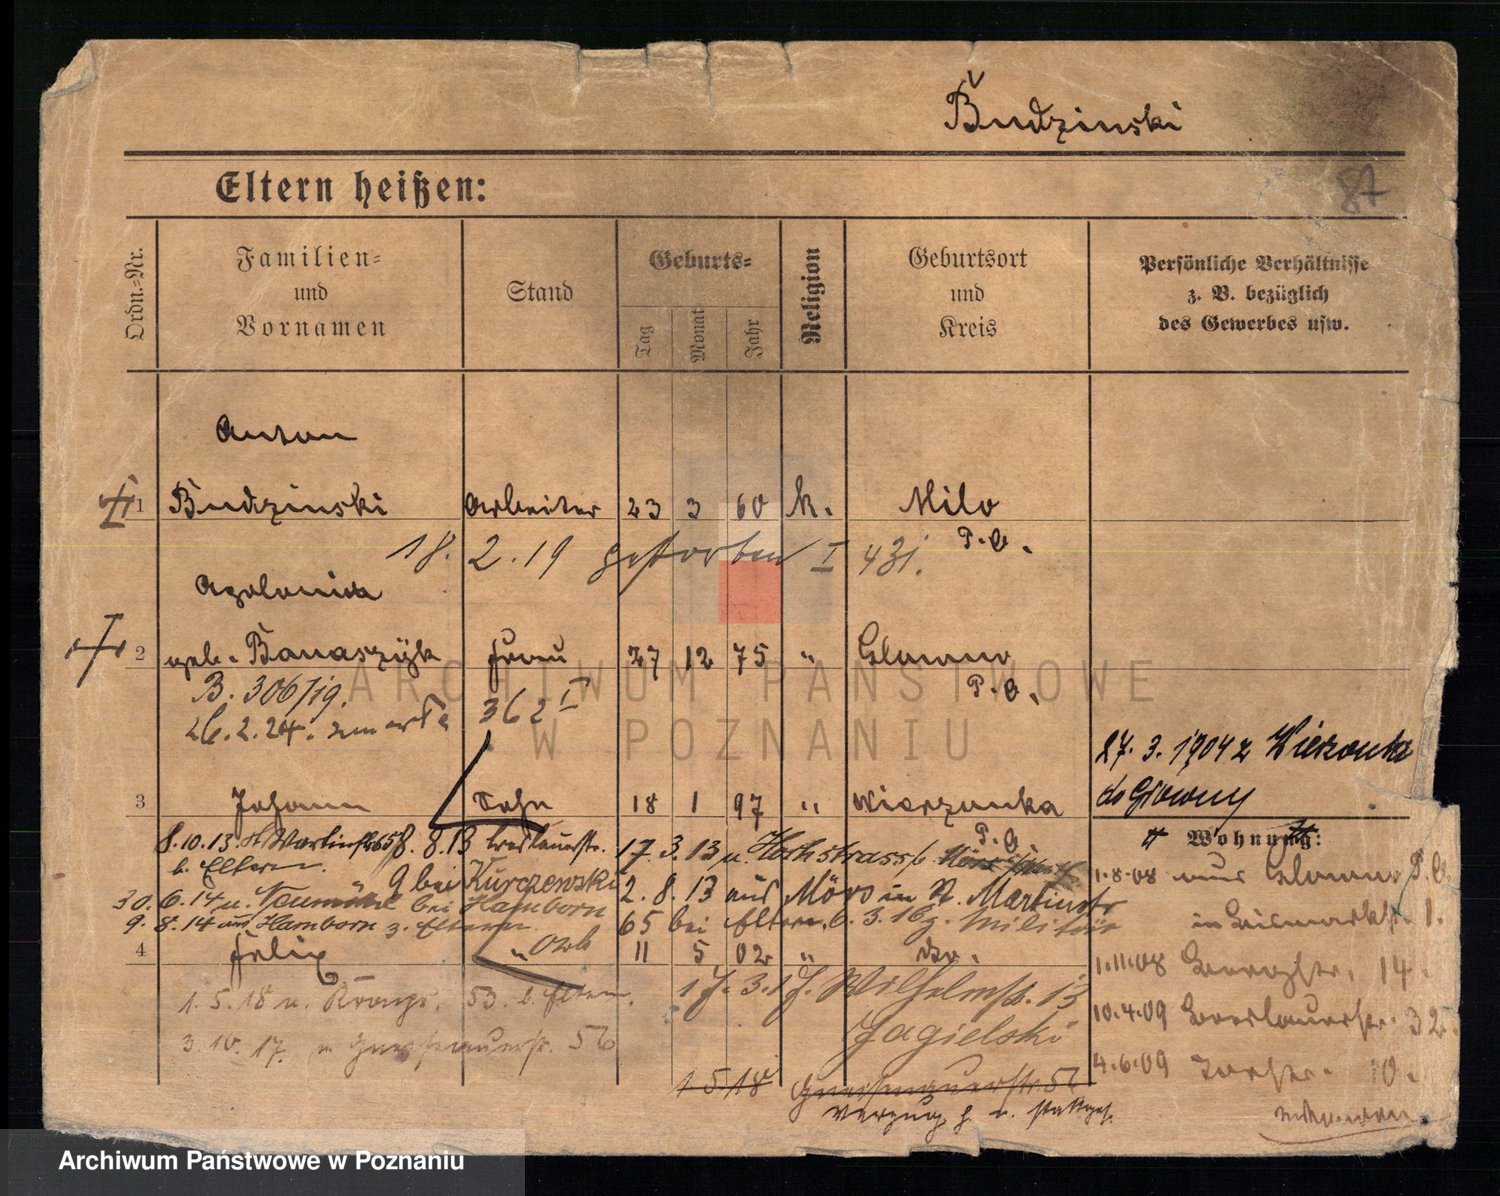 Budzinski
Eltern heißen:
87
Ordn.-Nr.
Familien-
und
Vornamen
Stand
Geburts-
Tag
Monat
Jahr
Religion
Geburtsort
und
Kreis
Persönliche Verhältnisse
z. B. bezüglich
des Gewerbes usw.
Anton
1 Budzinski Arbeiter 23 3 60 k. Milo
P.O.
18. 2. 19 gestorben I 431.
Apolonia
2 geb. Banaszyk Frau 27 12 75 " Glowno
P.O.
B. 306/19.
26.2.24. zmarła 362 I
27. 3. 1904 z Wierzonka
do Głowny
3 Johann Sohn 18 1 97 " Wierzonka
P.O.
8.10.13. St Martinstr 65 8. 8. 13 Breslauerstr. 17.3.13 n. Hochstrass
b. Eltern. 9 bei Kurczewski 2. 8. 13 aus Mörs in St. Martinstr
30. 6.14 n. bei Hamborn 65 bei Eltern. 6. 3. 16 z. Militär
9. 8.14 aus Hamborn z. Eltern
4 Felix " 11 5 02 " do.
1. 5. 18 n. 53. b. Eltern. 17. 3. 17. Wilhelmstr. 13
Jagielski
3. 10. 17. n Gnesenauerstr. 56
1 5 18 Gneisenauerstr. 56
Verzug n. stattgef.
Wohnung:
1.8.08 aus Glowno P.O.
in Bismarckstr. 1.
1.11.08 14.
10.4.09 Breslauerstr. 32.
4.6.09 10.
ARCHIWUM PAŃSTWOWE
W POZNANIU
Archiwum Państwowe w Poznaniu